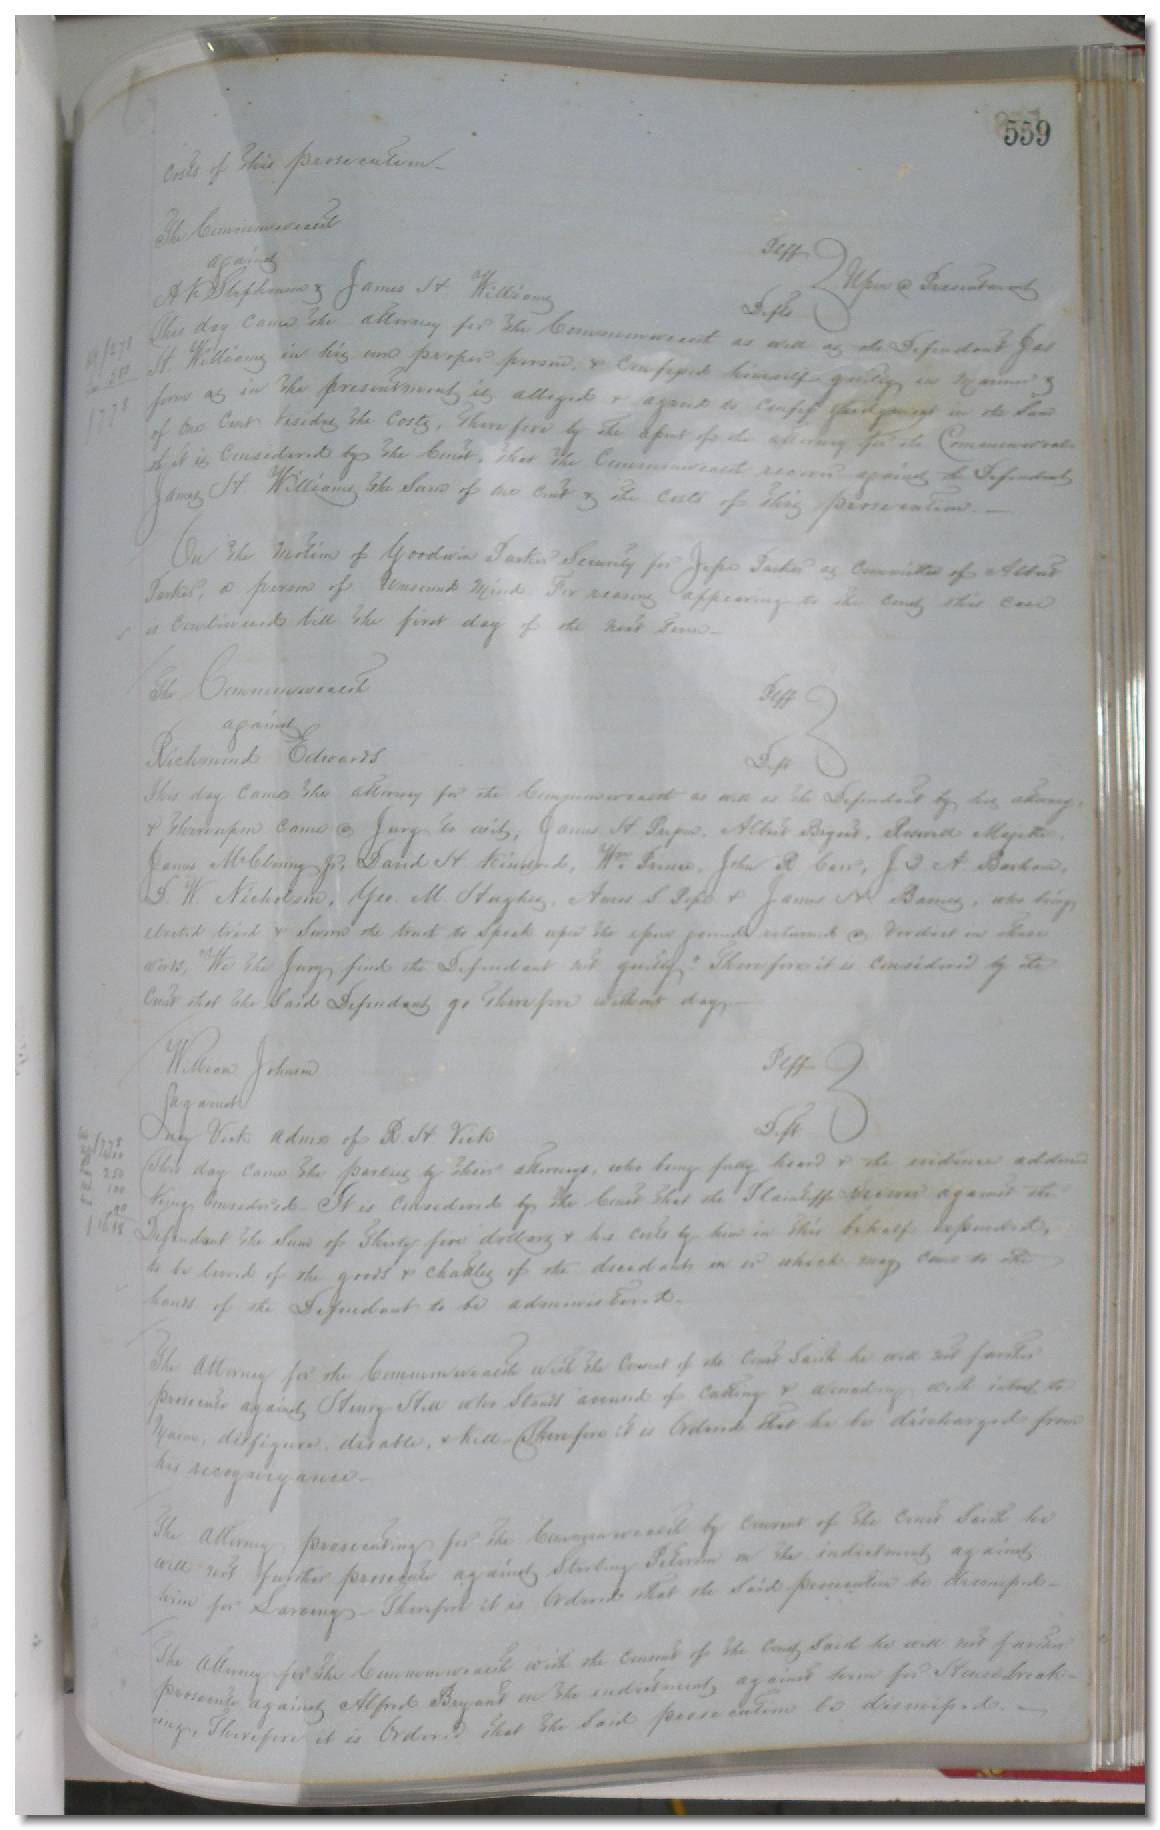 559
Costs of this prosecution—
The Commonwealth Plff
against Upon a Presentment
A K Stephenson & James H Williams Defts
This day came the attorney for the Commonwealth as well as the Defendant Jas
H. Williams in his own proper person, & confessed himself guilty in manner &
form as in the presentment is alleged & agreed to confess judgment in the Sum
of one Cent besides the Costs, Therefore by the assent of the attorney for the Commonweal-
th it is Considered by the Court, that the Commonwealth recover against the Defendant
James H. Williams the Sum of one Cent & the costs of this prosecution.—
On the motion of Goodwin Parker Security for Jesse Parker as Committee of Albert
Parker, a person of unsound mind. For reasons appearing to the court this case
is continued till the first day of the next Term—
The Commonwealth Plff
against
Richmond Edwards Deft
This day came the attorney for the Commonwealth as well as the Defendant by his attorney,
& thereupon came a Jury to wit, James H Pope, Albert Bryant, Roswell Majette,
James McClenny Jr, David H Kindred, Wm Prince, John R. Carr, J D A Barham,
D. W. Nicholson, Geo. M. Hughes, Amos S Pope & James H. Barnes, who being
elected tried & Sworn the truth to Speak upon the issue joined returned a Verdict in these
words, "We the Jury find the Defendant not guilty" Therefore it is Considered by the
Court that the Said Defendant go therefore without day—
William Johnson Plff
against
Vick admx of R. H Vick Deft
This day came the parties by their attorneys, who being fully heard & the evidence adduced
being Considered. It is Considered by the Court that the Plaintiff recover against the
Defendant the Sum of Thirty five dollars & his costs by him in this behalf expended,
to be levied of the goods & chattles of the decedents in or which may come to the
hands of the Defendant to be administered.
The Attorney for the Commonwealth with the Consent of the Court Saith he will not further
prosecute against Henry Hill who Stands accused of cutting & wounding with intent to
Maim, disfigure, disable, & kill— Therefore it is Ordered that he be discharged from
his recognizance—
The Attorney prosecuting for the Commonwealth by Consent of the Court Saith he
will not further prosecute against Sterling Peterson on the indictment against
him for Larceny— Therefore it is Ordered that the Said prosecution be dismissed—
The Attorney for the Commonwealth with the consent of the Court Saith he will not further
prosecute against Alfred Bryant on the indictment against him for House break-
ing, Therefore it is Ordered that the Said prosecution be dismissed.—